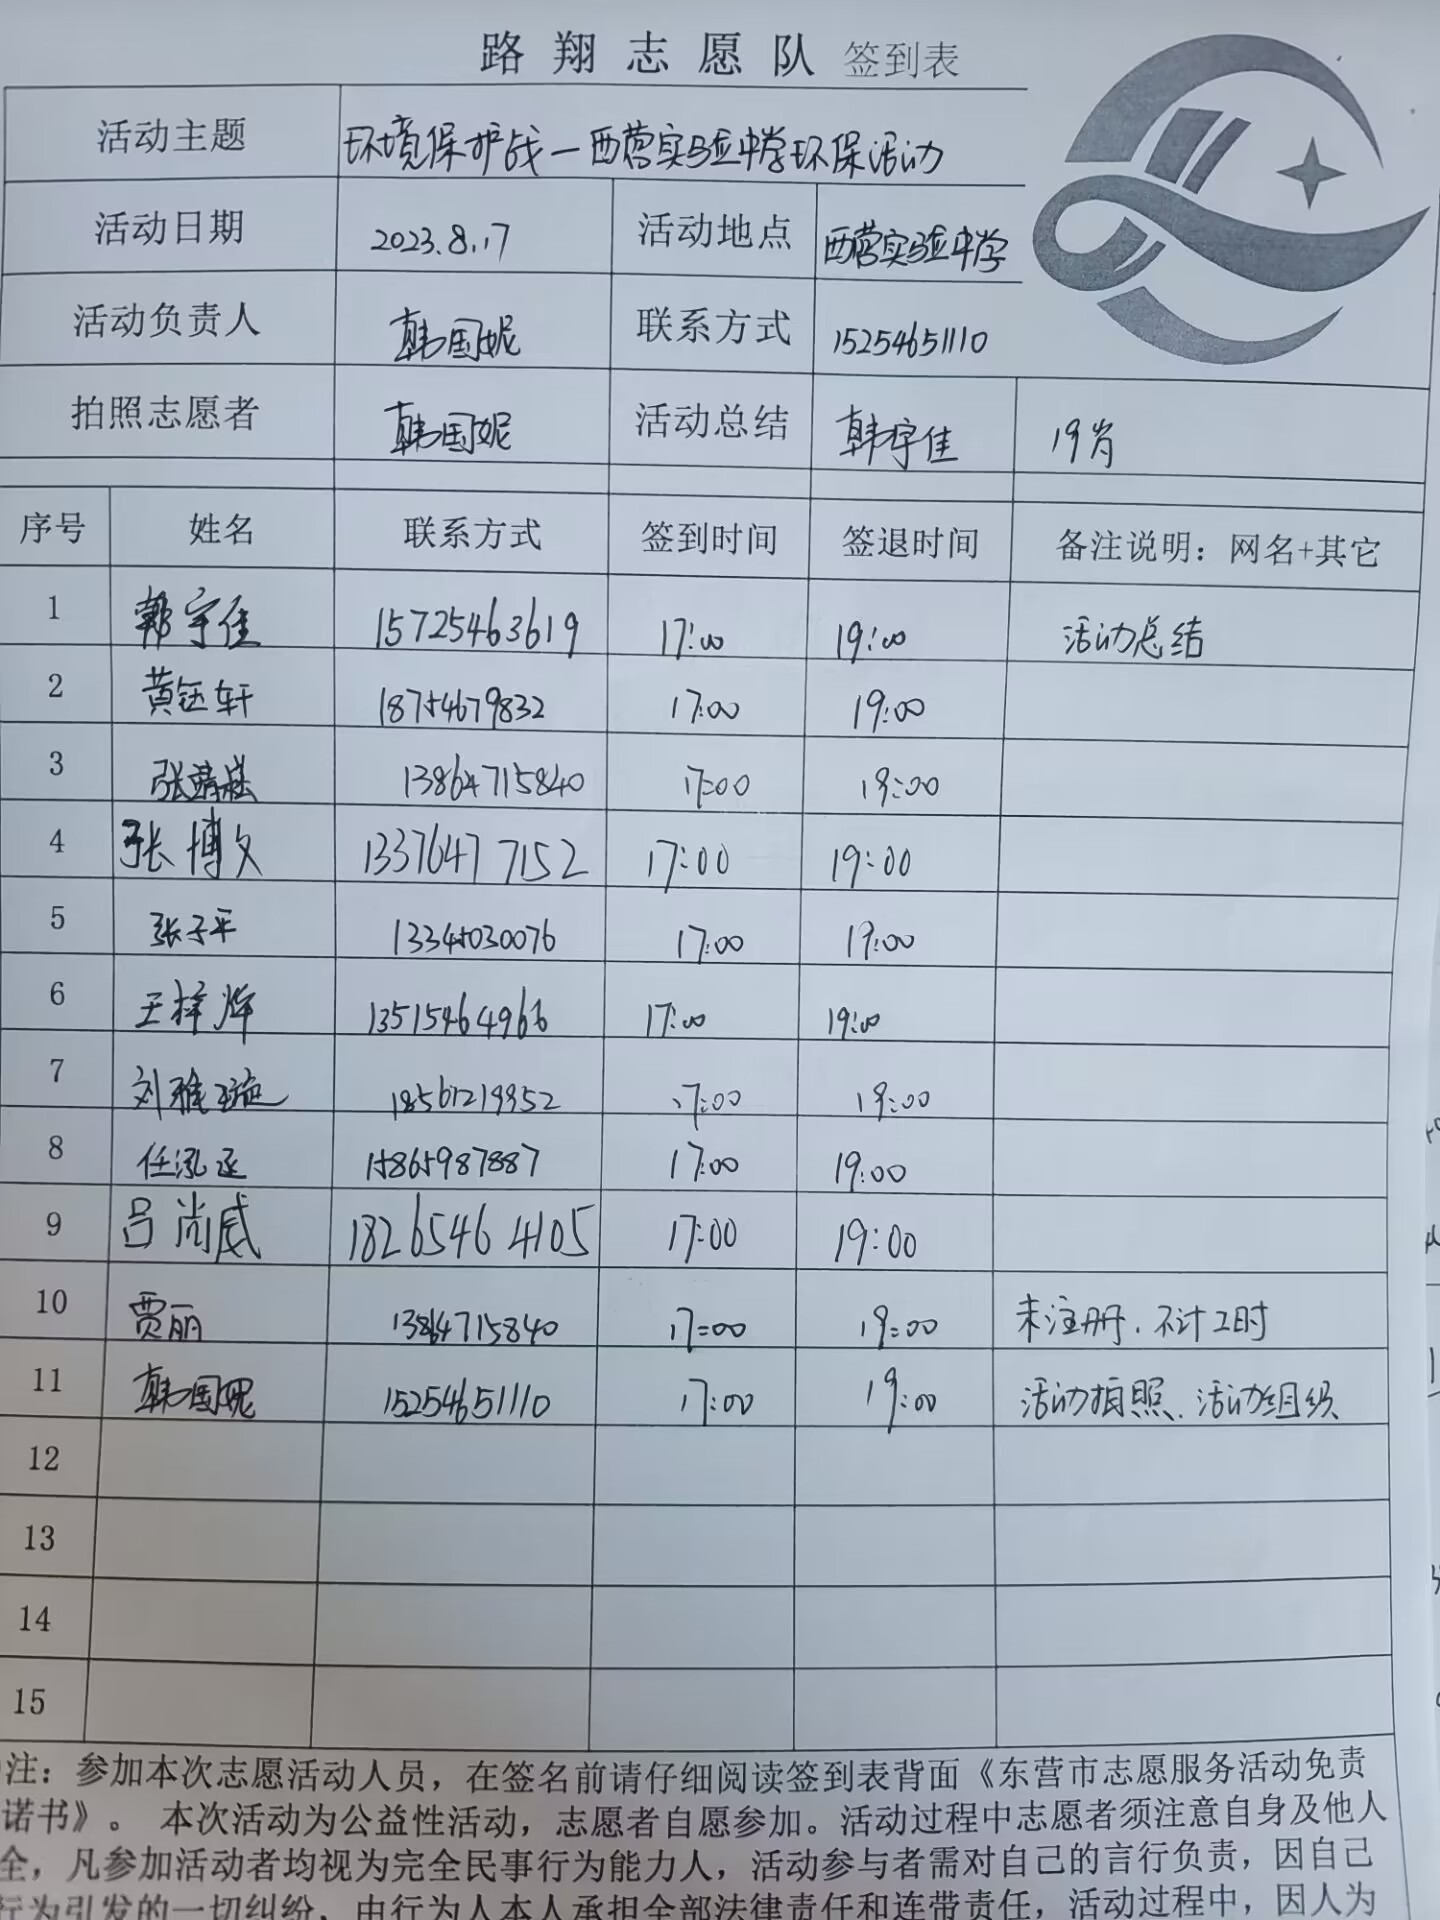 路翔志愿队 签到表
活动主题 环境保护战一西营实验中学环保活动
活动日期 2023.8.17 活动地点 西营实验中学
活动负责人 韩国妮 联系方式 15254651110
拍照志愿者 韩国妮 活动总结 韩宇佳
序号 姓名 联系方式 签到时间 签退时间 备注说明：网名+其它
1 郭宇佳 15725463619 17:00 19:00 活动总结
2 黄钰轩 18754679832 17:00 19:00
3 13864715840 17:00 19:00
4 张博文 13376477152 17:00 19:00
5 张子平 13345030076 17:00 19:00
6 王梓烨 13515464966 17:00 19:00
7 刘雅璇 18561219952 17:00 19:00
8 任泓丞 15865987887 17:00 19:00
9 吕尚威 18265464105 17:00 19:00
10 贾丽 13864715840 17:00 19:00 未注册.不计工时
11 韩国妮 15254651110 17:00 19:00 活动拍照.活动组织
12
13
14
15
注：参加本次志愿活动人员，在签名前请仔细阅读签到表背面《东营市志愿服务活动免责
诺书》。 本次活动为公益性活动，志愿者自愿参加。活动过程中志愿者须注意自身及他人
全，凡参加活动者均视为完全民事行为能力人，活动参与者需对自己的言行负责，因自己
行为引发的一切纠纷，由行为人本人承担全部法律责任和连带责任，活动过程中，因人为